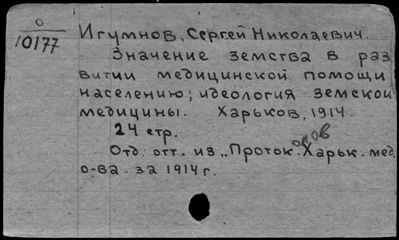 0
10177
Игумнов, Сергей Николаевич.
Значение земства в раз
витии медицинской помощи
населению; идеология земской
медицины. Харьков, 1914.
24 стр.
Отд. отт. из „Протоколов Харьк. мед.
о-ва. за 1914 г.